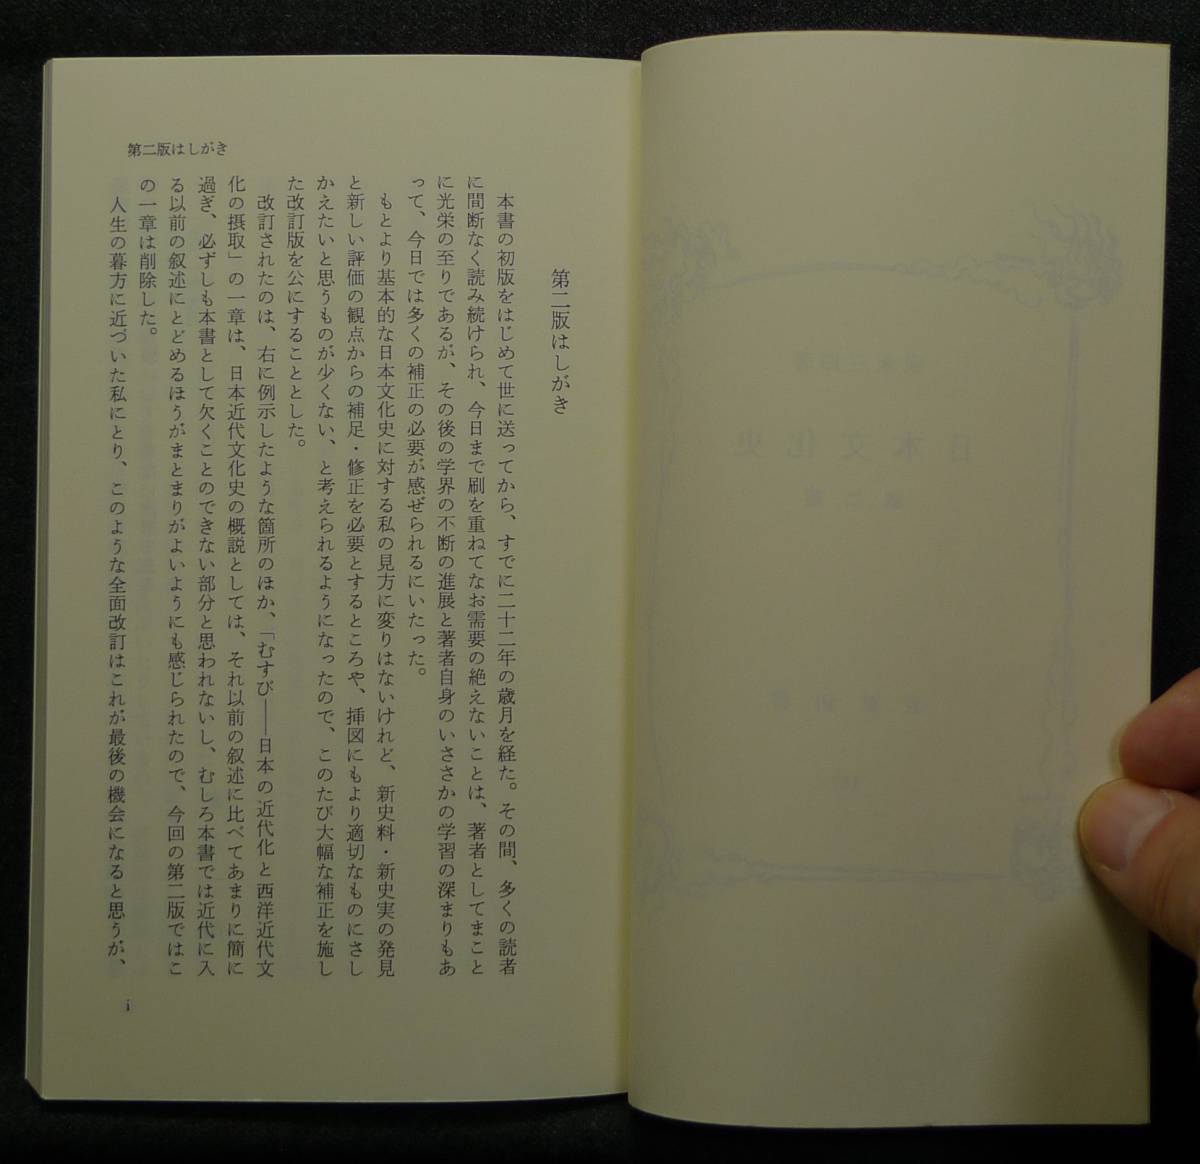 第二版はしがき
第二版はしがき
本書の初版をはじめて世に送ってから、すでに二十二年の歳月を経た。その間、多くの読者
に間断なく読み続けられ、今日まで刷を重ねてなお需要の絶えないことは、著者としてまこと
に光栄の至りであるが、その後の学界の不断の進展と著者自身のいささかの学習の深まりもあ
って、今日では多くの補正の必要が感ぜられるにいたった。
もとより基本的な日本文化史に対する私の見方に変りはないけれど、新史料・新史実の発見
と新しい評価の観点からの補足・修正を必要とするところや、挿図にもより適切なものにさし
かえたいと思うものが少くない、と考えられるようになったので、このたび大幅な補正を施し
た改訂版を公にすることとした。
改訂されたのは、右に例示したような箇所のほか、「むすび――日本の近代化と西洋近代文
化の摂取」の一章は、日本近代文化史の概説としては、それ以前の叙述に比べてあまりに簡に
過ぎ、必ずしも本書として欠くことのできない部分と思われないし、むしろ本書では近代に入
る以前の叙述にとどめるほうがまとまりがよいようにも感じられたので、今回の第二版ではこ
の一章は削除した。
人生の暮方に近づいた私にとり、このような全面改訂はこれが最後の機会になると思うが、
i
日本文化史